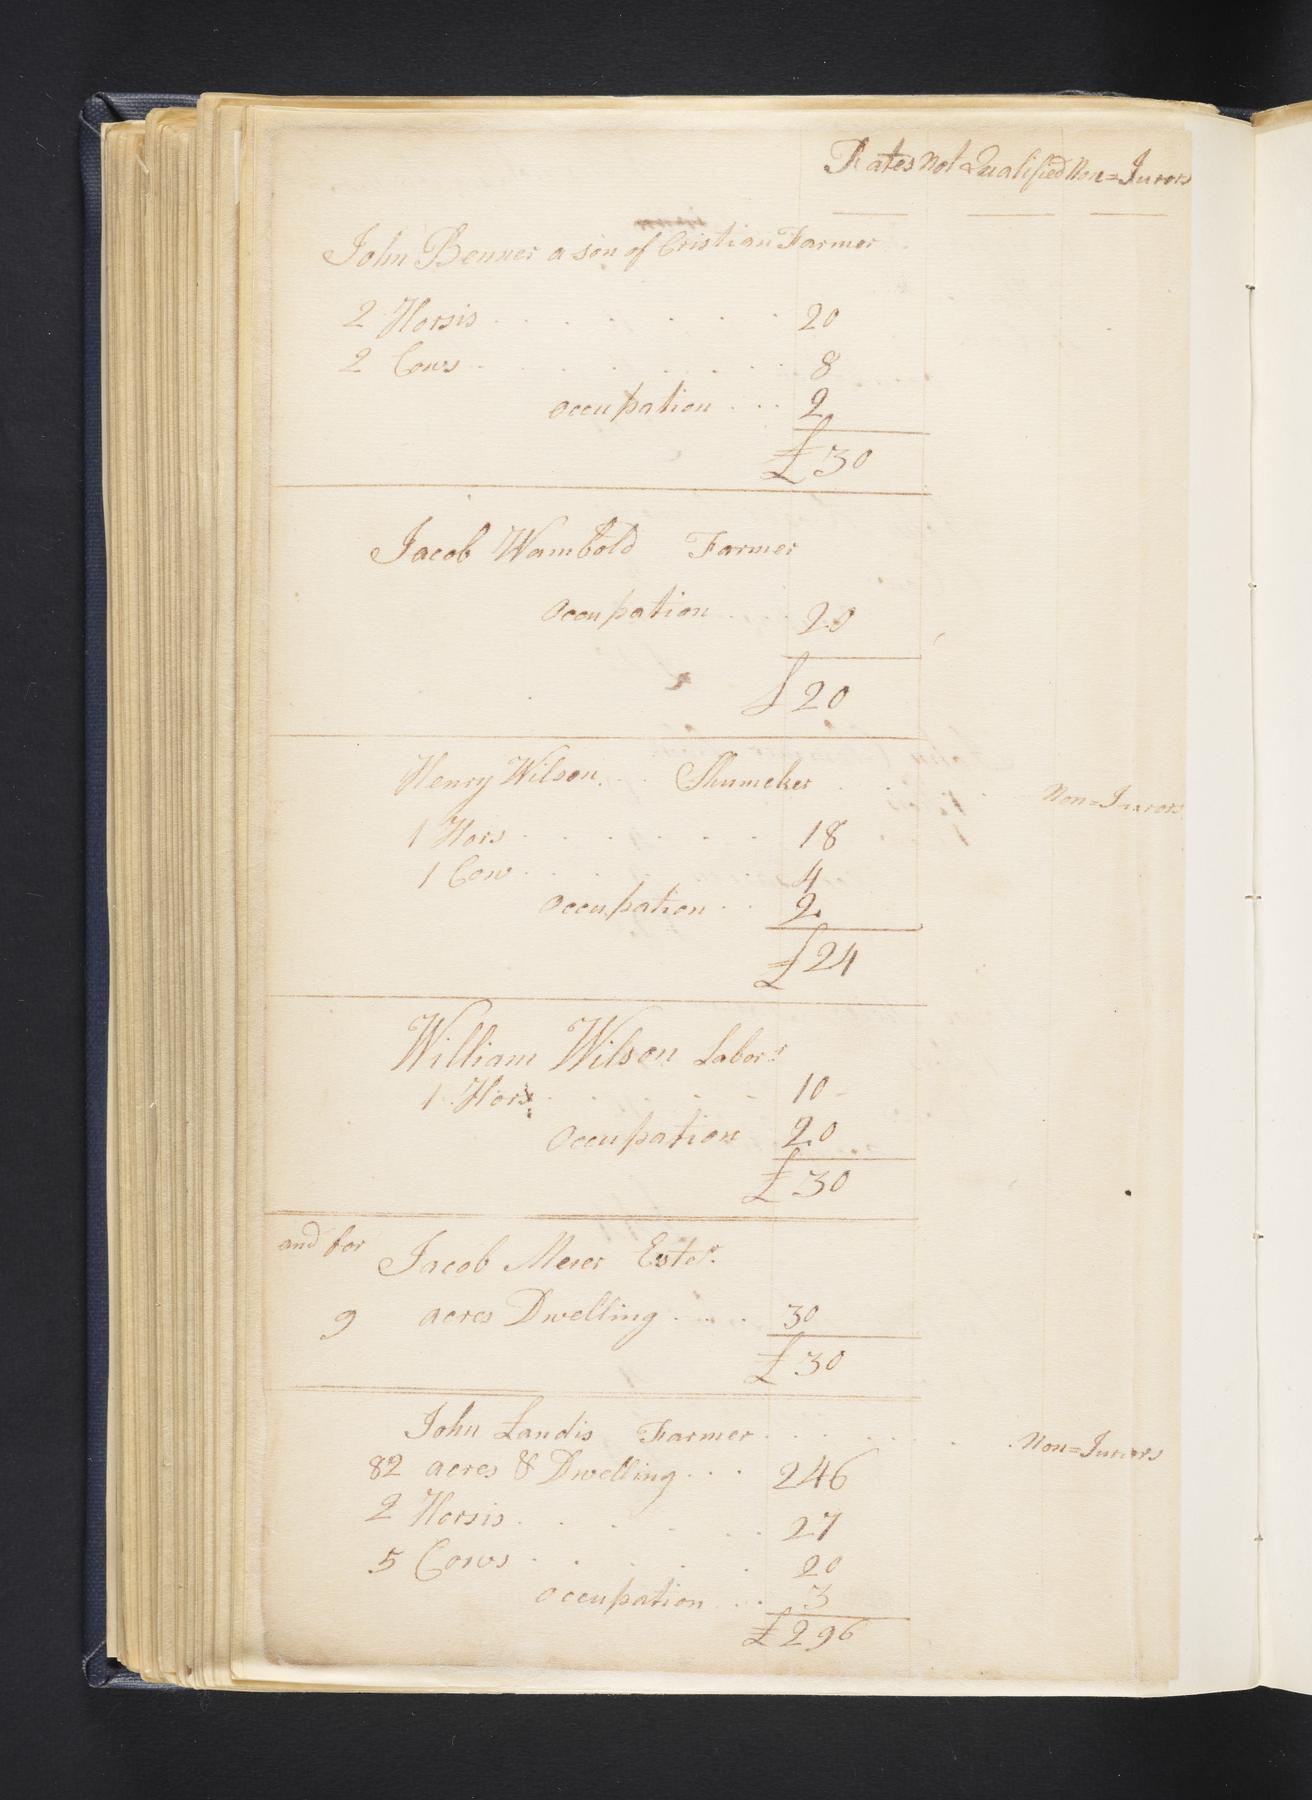 Rates Not Qualified Non=Jurors
John Benner a son of Cristian Farmer
2 Horsis . . . . . . 20
2 Cows . . . . . . . 8
occupation . . . 2
£30
Jacob Wambold Farmer
Occupation . . . . 20
£20
Henry Wilson . . Shumeker . . . Non=Jurors
1 Hors . . . . . . 18
1 Cow . . . . . . 4
Occupation . . 2
£24
William Wilson Labor.r
1 Hors . . . . 10
Occupation 20
£30
and for Jacob Meier Este.r
9 acres Dwelling . . . . 30
£30
John Landis Farmer . . . . . . Non=Jurors
82 acres & Dwelling . . . 246
2 Horsis . . . . . . 27
5 Cows . . . . . 20
occupation . . . 3
£296